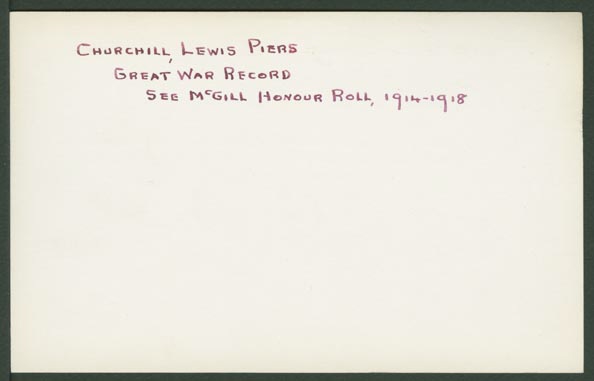 CHURCHILL, LEWIS PIERS
GREAT WAR RECORD
SEE McGILL HONOUR ROLL, 1914-1918